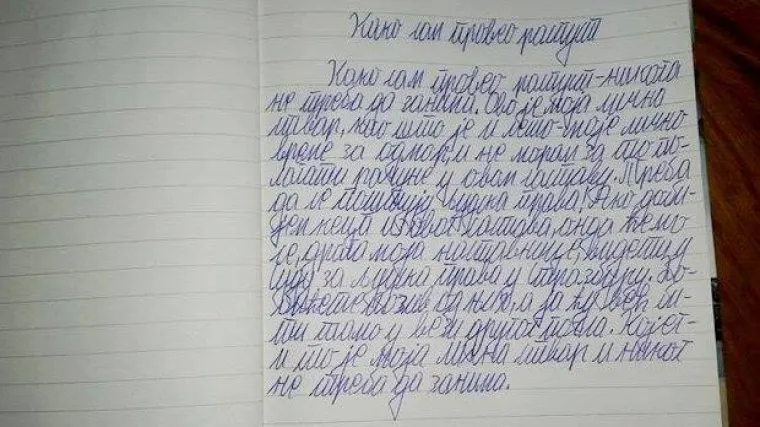 Како сам провео распуст
Како сам провео распуст-никога
не треба да занима. Ово је моја лично
ствар, као што је и лето-моје лично
време за одмор, и не морам за то по-
лагати рачуне у овом саставу. Треба
да се поштују људка права! Ако доби-
јем кеца из овог састава, онда ћемо
се, драга моја наставнице, видети у
суду за људка права у Стразбуру. До-
бићете позив од њих, а ја ћу већ би-
ти тамо у вези другог посла. Којег-
и то је моја лична ствар и никог
не треба да занима.